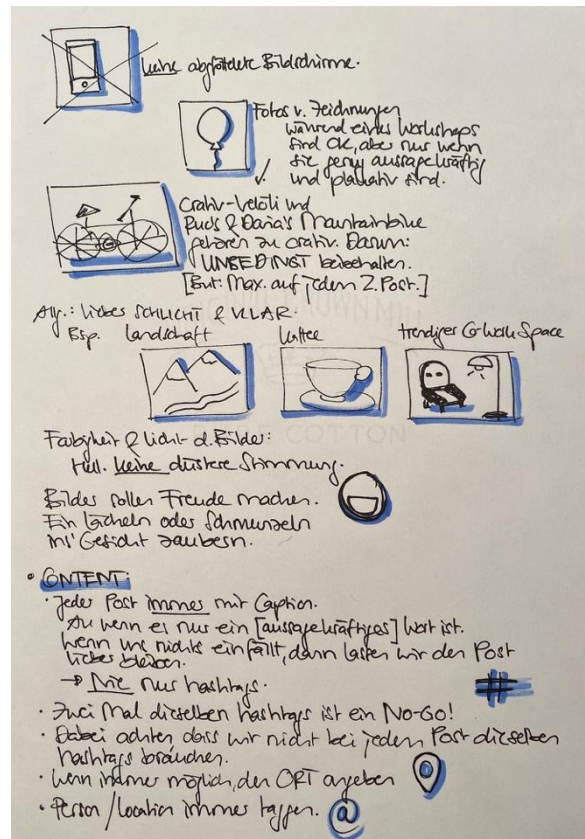 keine abgfotete Bildschirme.
Fotos v. Zeichnungen
während eines Workshops
sind OK, aber nur wenn
sie genug aussagekräftig
und plakativ sind.
Crativ-Velöli und
Rud's & Daria's Mountainbike
gehören zu crativ. Darum:
UNBEDINGT beibehalten.
[But: Max. auf jedem 2. Post.]
Allg.: lieber SCHLICHT & KLAR.
Bsp. Landschaft Kaffee trendiger Co-Work Space
Farbigkeit & Licht d. Bilder:
Hell. keine düstere Stimmung.
COTTON
Bilder sollen Freude machen.
Ein Lächeln oder Schmunzeln
ins Gesicht zaubern.
• CONTENT:
· Jeder Post immer mit Caption.
Au wenn es nur ein [aussagekräftiges] Wort ist.
Wenn uns nichts einfällt, dann lassen wir den Post
lieber bleiben.
→ Nie nur hashtags.
#
· Zwei Mal dieselben hashtags ist ein No-Go!
· Dabei achten dass wir nicht bei jedem Post dieselben
hashtags brauchen.
· Wenn immer möglich, den ORT angeben
· Person / Location immer taggen. @